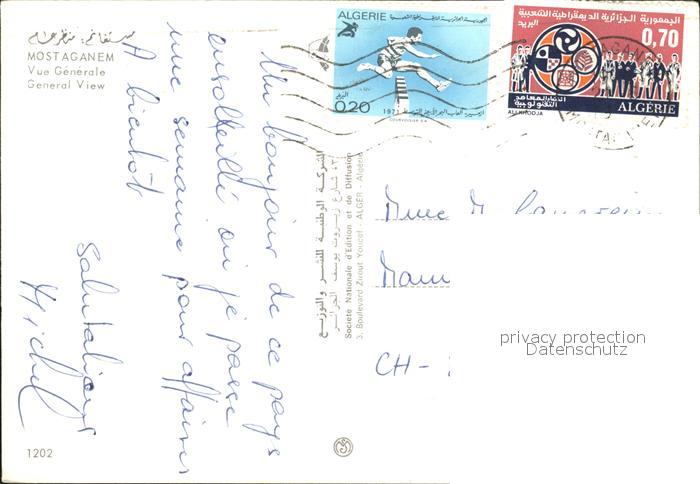 مستغانم: منظر عام
MOSTAGANEM
Vue Générale
General View
Un bonjour de ce pays
ensoleillé où je passe
une semaine pour affaires
A bientôt
Salutations
Michel
1202
الشركة الوطنية للنشر والتوزيع
٣، شارع زيروت يوسف الجزائر
Société Nationale d'Edition et de Diffusion
3, Boulevard Zirout Youcef - ALGER - Algérie
ALGERIE
الجمهورية الجزائرية الديمقراطية الشعبية
البريد
0.20
1971
COURVOISIER S.A.
الجمهورية الجزائرية الديمقراطية الشعبية
البريد
0,70
المعاهد
التكنولوجية
ALI-KHODJA
ALGÉRIE
Mme M.
CH-
privacy protection
Datenschutz